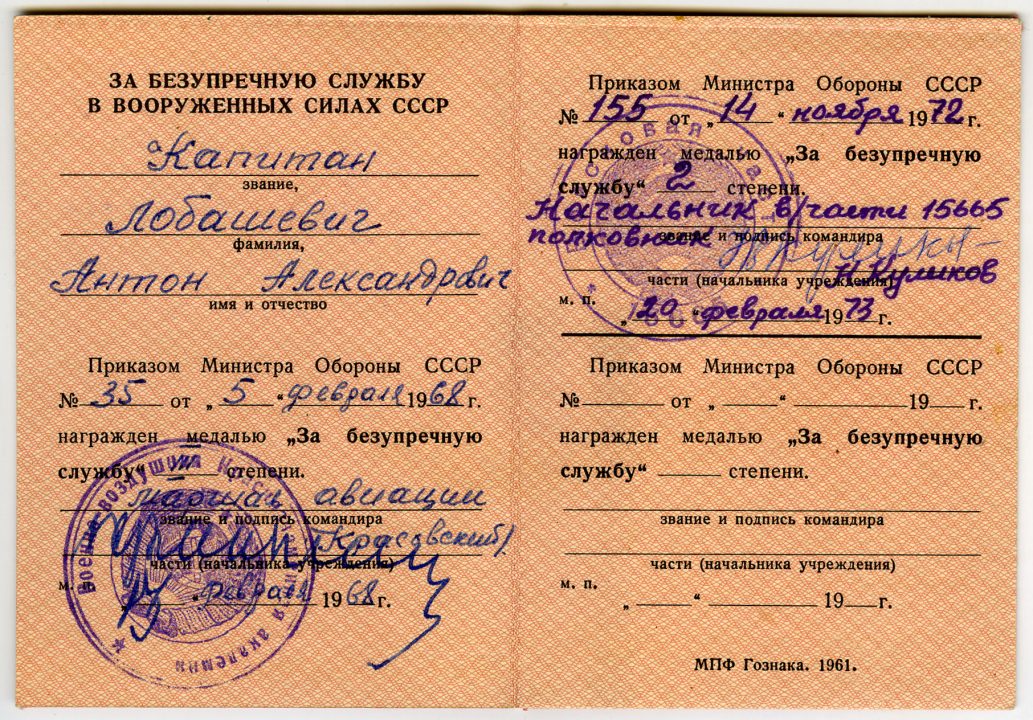 ЗА БЕЗУПРЕЧНУЮ СЛУЖБУ
В ВООРУЖЕННЫХ СИЛАХ СССР
Капитан
звание,
Лобашевич
фамилия,
Антон Александрович
имя и отчество
Приказом Министра Обороны СССР
№ 35 от „ 5 “ февраля 1968 г.
награжден медалью „За безупречную
службу“ III степени.
маршал авиации
звание и подпись командира
(Красовский)
части (начальника учреждения)
м. п.
„ “ февраля 1968 г.
Военно-воздушная академия
Приказом Министра Обороны СССР
№ 155 от „ 14 “ ноября 1972 г.
награжден медалью „За безупречную
службу“ 2 степени.
Начальник в/части 15665
полковник
звание и подпись командира
Н. Куликов
части (начальника учреждения)
м. п.
„ 20 “ февраля 1973 г.
Приказом Министра Обороны СССР
№ от „ “ 19 г.
награжден медалью „За безупречную
службу“ степени.
звание и подпись командира
части (начальника учреждения)
м. п.
„ “ 19 г.
МПФ Гознака. 1961.